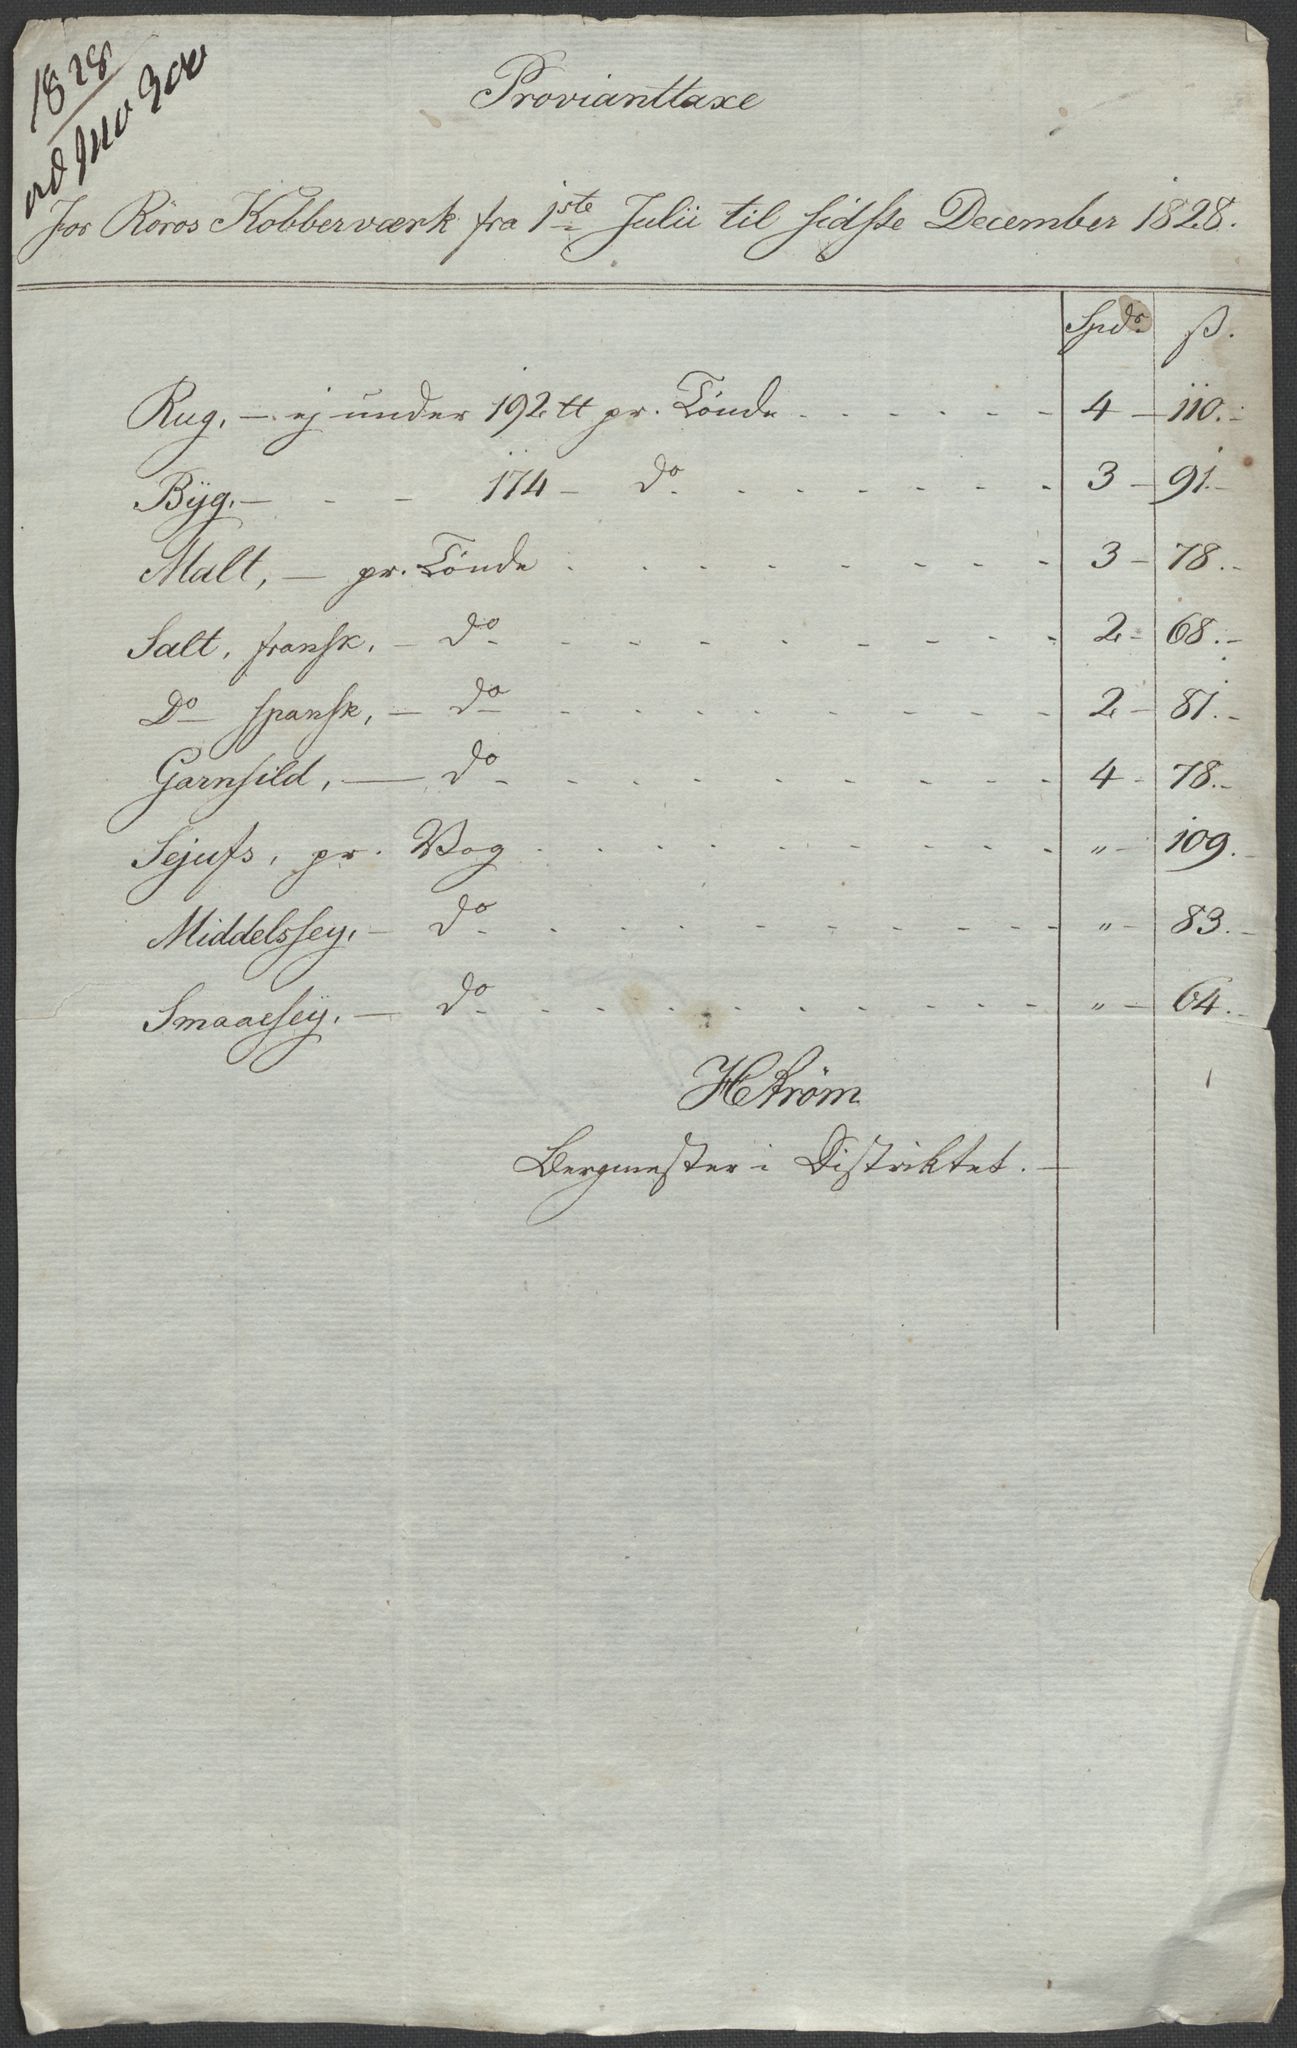 1828
Provianttaxe
for Röros Kobberværk fra 1ste Julii til sidste December 1828.
Spdr. ß.
Rug, — ej under 192 tt pr. Tönde - - - - - - 4 — 110. -
Bÿg, — - - 174 - do - - - - - - - 3 - 91. -
Malt, — pr. Tönde - - - - - - - - 3 - 78. -
Salt, fransk, - do - - - - - - - - 2 - 68. -
Do spansk, - do - - - - - - - - 2 - 81. -
Garnsild, — do - - - - - - - - 4 - 78. -
Sejufs, pr. Vog - - - - - - - - " - 109. -
Middelssey, - do - - - - - - - - " - 83. -
Smaaesey, — do - - - - - - - - " - 64. -
HStrøm
Bergmester i Distriktet. —